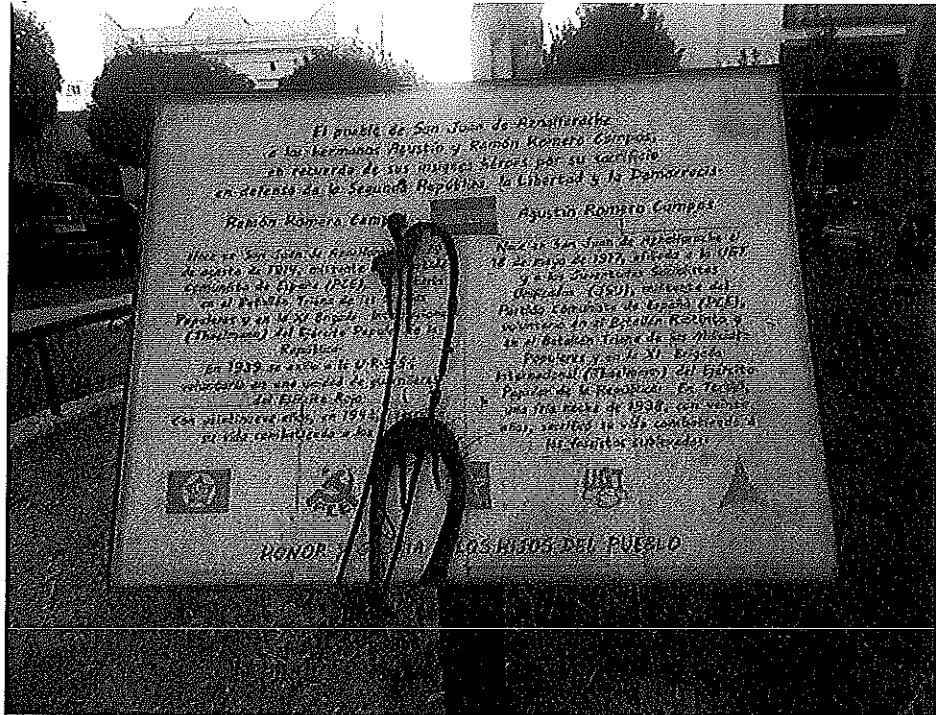 El pueblo de San Juan de Aznalfarache
a los hermanos Agustín y Ramón Romero Campos,
en recuerdo de sus insignes héroes por su sacrificio
en defensa de la Segunda República, la Libertad y la Democracia.
Ramón Romero
Nace en San Juan de
de agosto de 1914, militante
Comunista de España (PCE)
en el Batallón Triana de
Populares y en la XI Brigada
(Thaelmann) del Ejército Popular de la
República.
En 1939 se exilia a la U.R.S.S.
voluntario en una unidad de guerrilleros
del Ejército Rojo.
Con veintinueve años, en 1943,
su vida combatiendo a los
Agustín Romero Campos
Nace en San Juan de Aznalfarache el
18 de mayo de 1917, afiliado a la UGT
y a las Juventudes Socialistas
Unificadas (JSU), militante del
Partido Comunista de España (PCE),
voluntario en el Batallón y
en el Batallón Triana de las Milicias
Populares y en la XI Brigada
Internacional (Thaelmann) del Ejército
Popular de la República. En Teruel,
una fría noche de 1938, con veinte
años, sacrifica su vida combatiendo a
los fascistas sublevados.
UGT
HONOR LOS HIJOS DEL PUEBLO